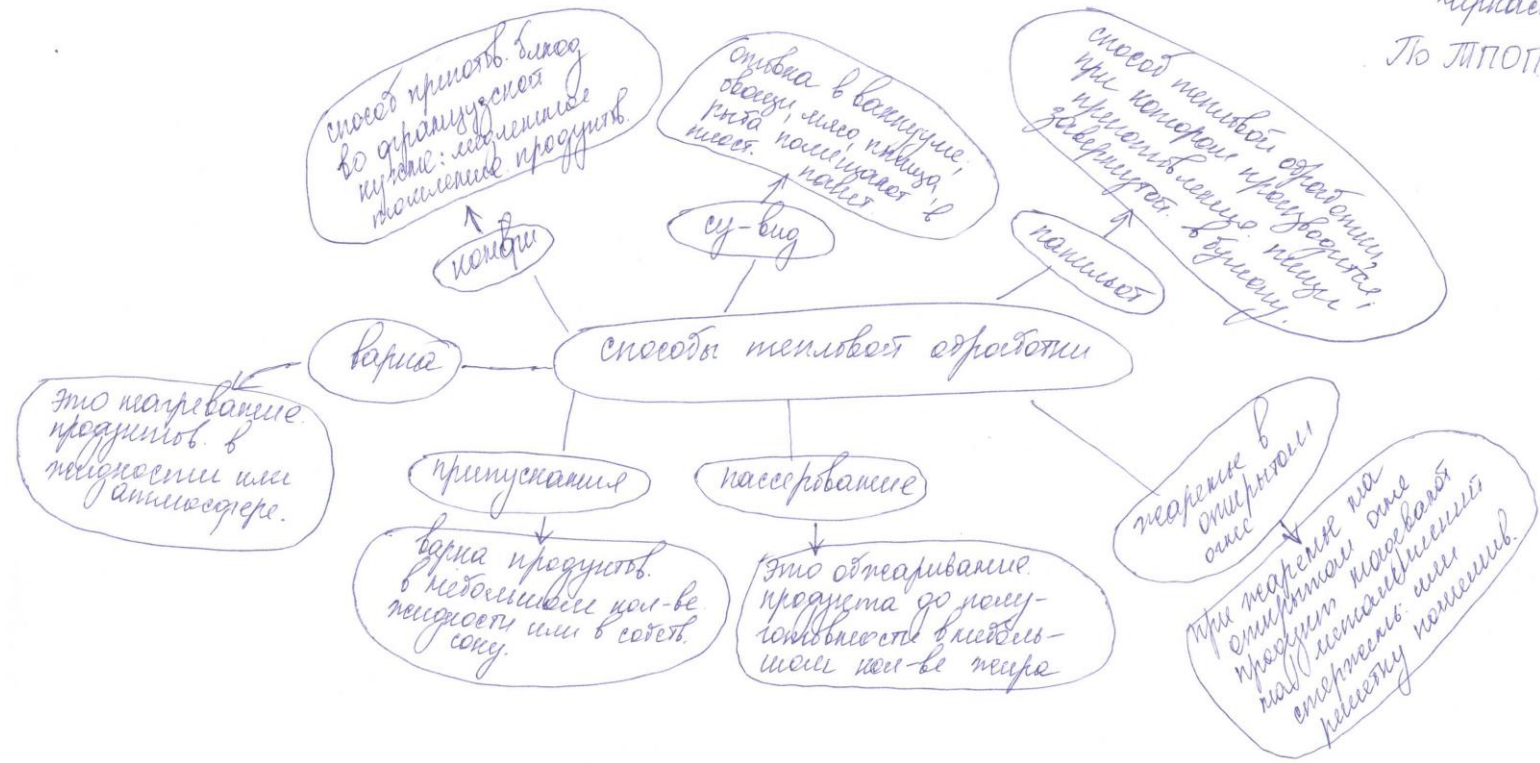 По ТПОП
способ приготов. блюд
во французской
кухне: медленное
томление продуктов.
конфи
готовка в вакууме;
овощи, мясо, птица,
рыба помещают в
пласт. пакет
су-вид
способ тепловой обработки,
при котором производится
приготовление пищи,
завернутой в бумагу.
папильот
способы тепловой обработки
варка
это нагревание
продуктов в
жидкости или
атмосфере.
припускания
варка продуктов
в небольшом кол-ве
жидкости или в собств.
соку.
пассерование
это обжаривание
продукта до полу-
готовности в неболь-
шом кол-ве жира
жаренье в
открытом
огне
при жаренье на
открытом огне
продукт надевают
на металлический
стержень или
решетку